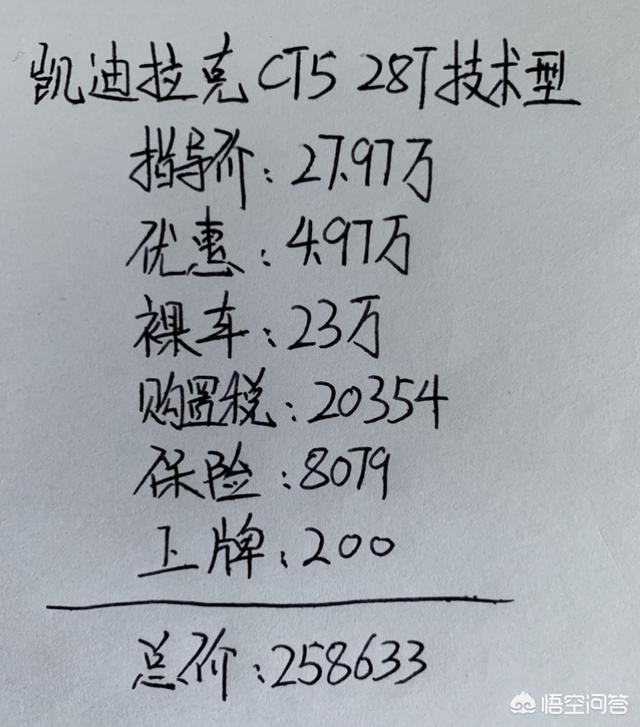 凯迪拉克CT5 28T技术型
指导价:27.97万
优惠:4.97万
裸车:23万
购置税:20354
保险:8079
上牌:200
总价:258633
悟空问答